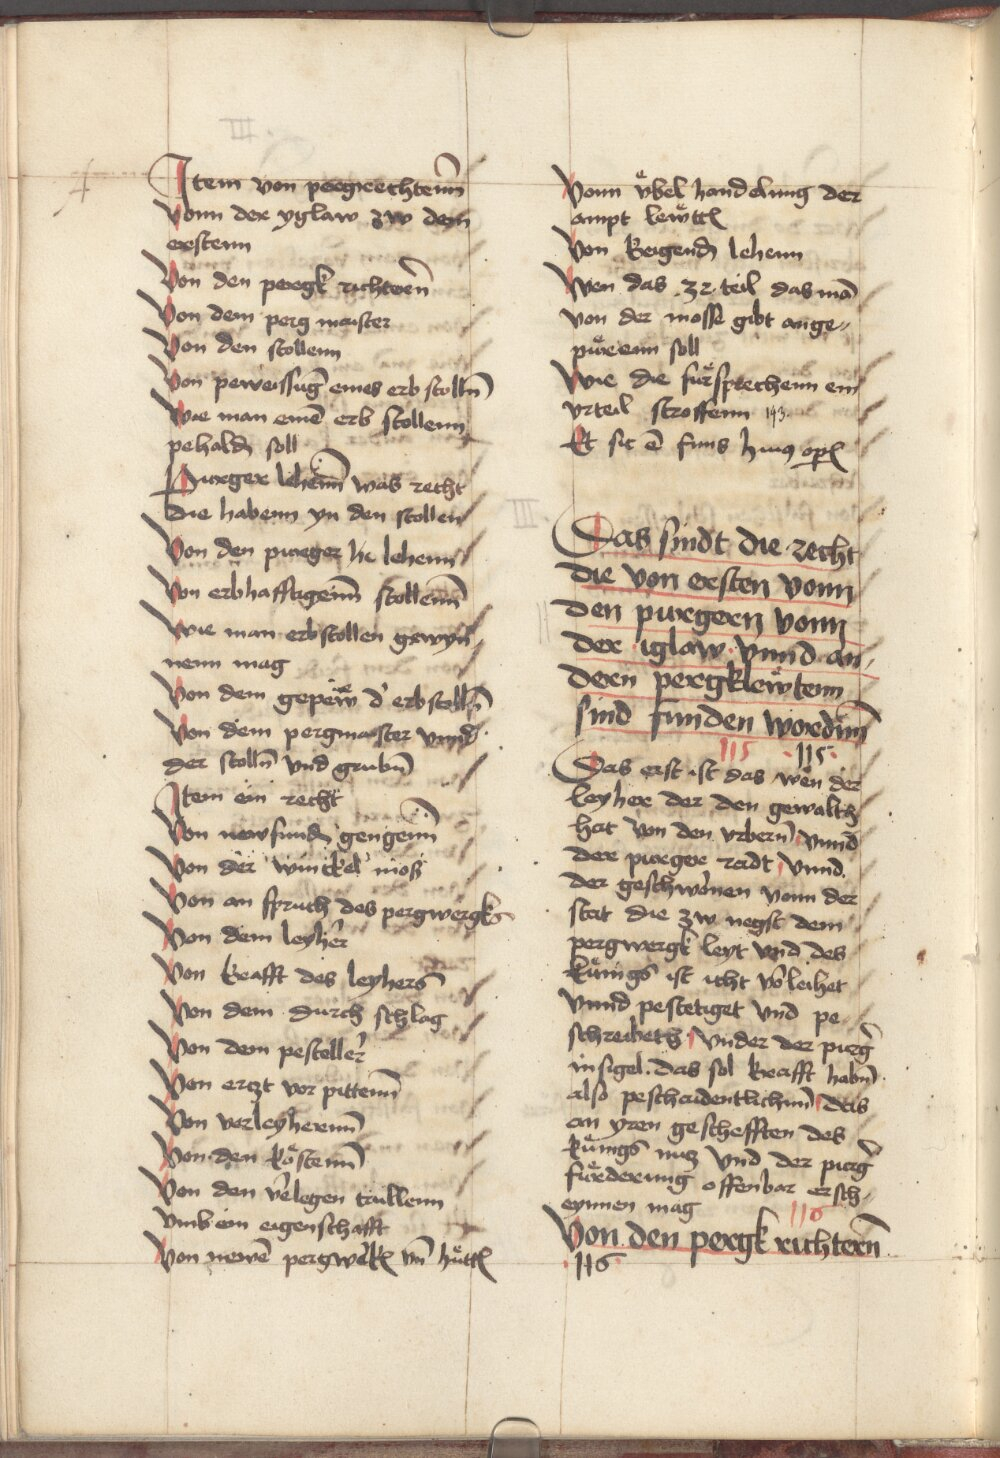 Item von pergrechtenn̄
Vonn der yglaw zw dem
erstenn
Von den pergk richtern̄
Von dem perg maister
Von den stollenn
Von peweissūg eines erb stolln̄
Wie man einē erb stollenn
pehaldn̄ soll
Purger lehenn̄ was recht
die habenn yn den stollen
Von den purger lehenn
Von erbhafftigenn̄ stollenn̄
Wie man erbstollen gewyn
nenn mag
Von dem gepew d' erbstolln̄
Von dem pergmaister vnnd
der stolln̄ vnd grubn̄
Item ein recht
Von newfundn̄ gengenn̄
Von der winckel moß
Von an spruch des pergwergks
Von dem leyher
Von krafft des leyhers
Von dem durch schlag
Von dem pesteller
Von erczt vor pittenn̄
Von verleyhenn̄
Von den kostenn̄
Von den v'legen taillenn
vmb ein eigenschafft
Von newē pergwerkn̄ vn̄ huttn̄
Vonn vbel handelung der
ampt lewttn̄
Von kriegendn̄ lehenn
Wen das .32. teil das mā
von der mosse gibt ange-
purenn soll
Wie die fursprechenn ein
vrteil stroffenn 143.
Et sic ē finis huiꝯ opis
Das sindt die recht
die von ersten vonn
den purgern vonn
der iglaw vnnd an-
dern pergklewtenn
sind funden wordnn̄
115 .115.
Das erst ist das wen der
leyher der den gewaltz
hat von den vrbern̄ vnnd
der purger radt vnnd
der geschwornen vonn der
stat die zw negst dem
pergwergk leyt vnd des
kunigs ist icht v'leihet
vnnd pestetiget vnd pe
schreibetz vnder der purg'
insigel. das sol krafft habn̄
also peschaidentlichnn̄ das
an yren geschefften des
kunigs nucz vnd der purg'
furderung offenbar ersch-
eynnen mag
116
Von den pergk richtern̄
.116.